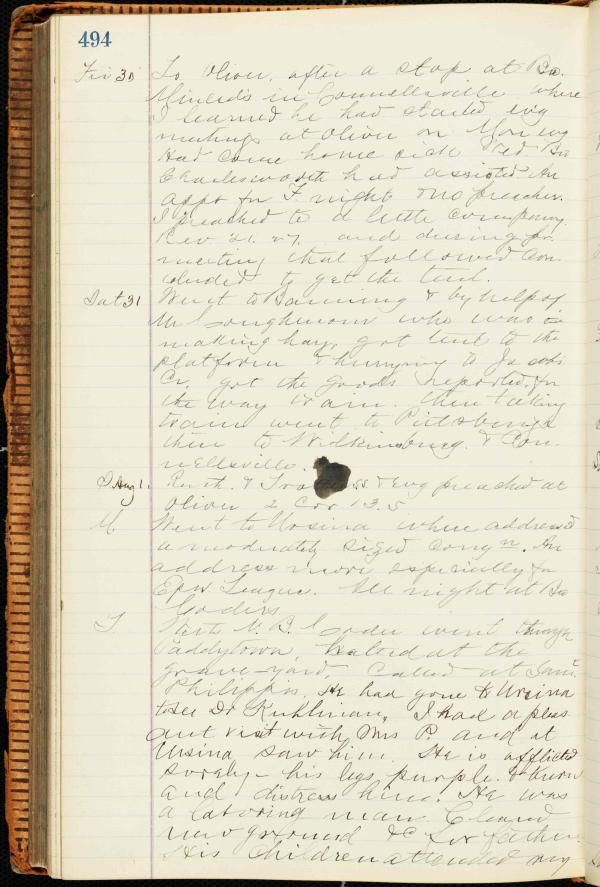 494
Fri 30 To Oliver, after a stop at Bro.
in Connellsville where
I learned he had started evg
meetings at Oliver on Mon evg
Had come home sick Wed Bro
Charlesworth had assisted. An
appt for F. night no preacher.
I preached to a little company.
Rev 21. 27. and during pr.
meeting that followed con
cluded to get the tent.
Sat 31 Went to Banning & by help of
Mr Loughman who was
making hay, got tent to the
platform & hurrying to Jacobs
Cr. got the goods reported for
the way train. then taking
train went to Pittsburgh
then to Wilkinsburg. & Con
nellsville.
S Aug 1. & Evg preached at
Oliver 2 Cor 13.5
M. Went to Ursina where address'd
a moderately sized congn. An
address more especially for
Epw League. All night at Bro
T With N. B. went through
Paddytown, halted at the
grave-yard, Called at Saml
Philippis. He had gone to Ursina
to see Dr Kuhlman, I had a pleas
ant visit with Mrs P. and at
Ursina saw him. He is afflicted
sorely - his legs purple. & burn
and distress him. He was
a laboring man. Cleared
new ground &c for father.
His children attended my